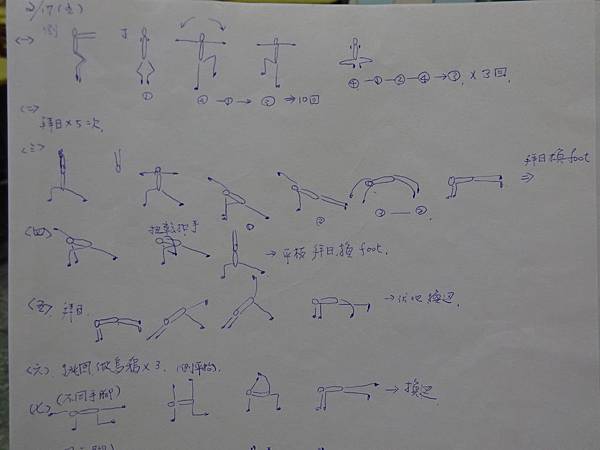 2/17(立)
側
<一>
①
④→①→② ⇒10回
④→①→②→④→③, ×3回,
<二>
拜日×5次,
<三>
① ② ①—②
拜日換foot
⇒
<四>
扭轉把手
→平板 拜日,換foot,
<五> 拜日,
→伏地換邊,
<六> 跳回做烏鴉×3,
<七> (不同手腳)
→換邊